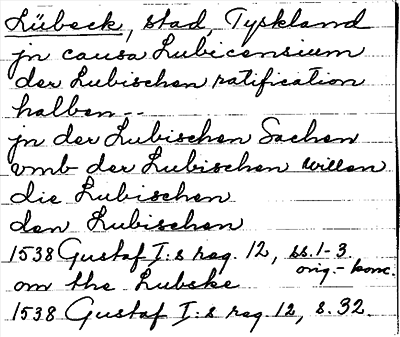 Lübeck, stad, Tyskland
jn causa Lubicensium
der Lubischen ratification
halben,-
jn der Lubischen Sachen
vmb der Lubischen willen
die Lubischen
den Lubischen
1538 Gustaf I:s reg. 12, ss. 1-3.
orig.-konc.
om the Lubske
1538 Gustaf I:s reg. 12, s. 32.